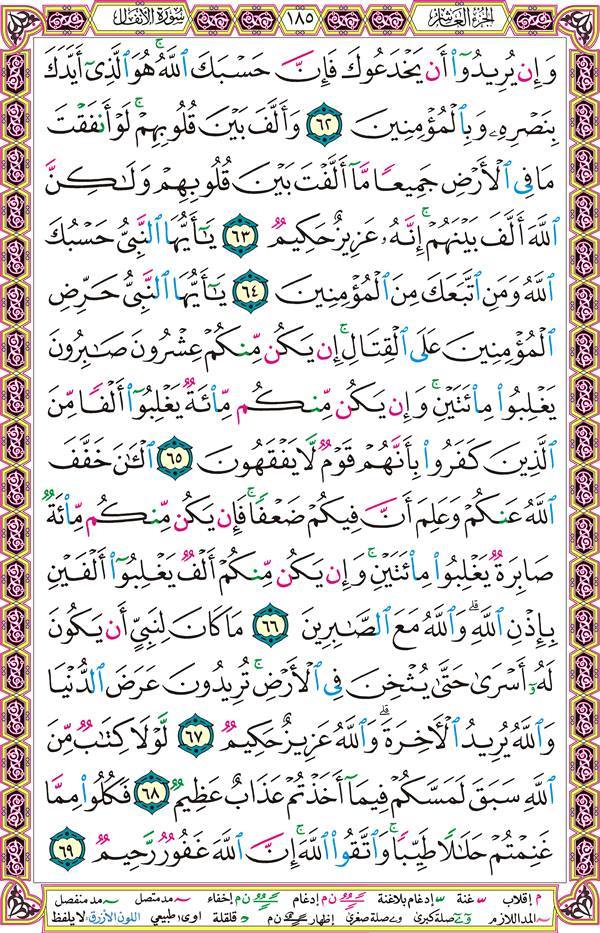 الجزء العاشر
١٨٥
سورة الأنفال
وَإِن يُرِيدُوٓا۟ أَن يَخْدَعُوكَ فَإِنَّ حَسْبَكَ ٱللَّهُ ۚ هُوَ ٱلَّذِىٓ أَيَّدَكَ
بِنَصْرِهِۦ وَبِٱلْمُؤْمِنِينَ ٦٢ وَأَلَّفَ بَيْنَ قُلُوبِهِمْ ۚ لَوْ أَنفَقْتَ
مَا فِى ٱلْأَرْضِ جَمِيعًا مَّآ أَلَّفْتَ بَيْنَ قُلُوبِهِمْ وَلَـٰكِنَّ
ٱللَّهَ أَلَّفَ بَيْنَهُمْ ۚ إِنَّهُۥ عَزِيزٌ حَكِيمٌ ٦٣ يَـٰٓأَيُّهَا ٱلنَّبِىُّ حَسْبُكَ
ٱللَّهُ وَمَنِ ٱتَّبَعَكَ مِنَ ٱلْمُؤْمِنِينَ ٦٤ يَـٰٓأَيُّهَا ٱلنَّبِىُّ حَرِّضِ
ٱلْمُؤْمِنِينَ عَلَى ٱلْقِتَالِ ۚ إِن يَكُن مِّنكُمْ عِشْرُونَ صَـٰبِرُونَ
يَغْلِبُوا۟ مِا۟ئَتَيْنِ ۚ وَإِن يَكُن مِّنكُم مِّا۟ئَةٌ يَغْلِبُوٓا۟ أَلْفًا مِّنَ
ٱلَّذِينَ كَفَرُوا۟ بِأَنَّهُمْ قَوْمٌ لَّا يَفْقَهُونَ ٦٥ ٱلْـَٔـٰنَ خَفَّفَ
ٱللَّهُ عَنكُمْ وَعَلِمَ أَنَّ فِيكُمْ ضَعْفًا ۚ فَإِن يَكُن مِّنكُم مِّا۟ئَةٌ
صَابِرَةٌ يَغْلِبُوا۟ مِا۟ئَتَيْنِ ۚ وَإِن يَكُن مِّنكُمْ أَلْفٌ يَغْلِبُوٓا۟ أَلْفَيْنِ
بِإِذْنِ ٱللَّهِ ۗ وَٱللَّهُ مَعَ ٱلصَّـٰبِرِينَ ٦٦ مَا كَانَ لِنَبِىٍّ أَن يَكُونَ
لَهُۥٓ أَسْرَىٰ حَتَّىٰ يُثْخِنَ فِى ٱلْأَرْضِ ۚ تُرِيدُونَ عَرَضَ ٱلدُّنْيَا
وَٱللَّهُ يُرِيدُ ٱلْـَٔاخِرَةَ ۗ وَٱللَّهُ عَزِيزٌ حَكِيمٌ ٦٧ لَّوْلَا كِتَـٰبٌ مِّنَ
ٱللَّهِ سَبَقَ لَمَسَّكُمْ فِيمَآ أَخَذْتُمْ عَذَابٌ عَظِيمٌ ٦٨ فَكُلُوا۟ مِمَّا
غَنِمْتُمْ حَلَـٰلًا طَيِّبًا ۚ وَٱتَّقُوا۟ ٱللَّهَ ۚ إِنَّ ٱللَّهَ غَفُورٌ رَّحِيمٌ ٦٩
م إقلاب غنة إدغام بلاغنة ن م إدغام ن م إخفاء مد متصل مد منفصل
المد اللازم صلة كبرى صلة صغرى إظهار ن م قلقلة اوى طبيعي اللون الأزرق لا يلفظ